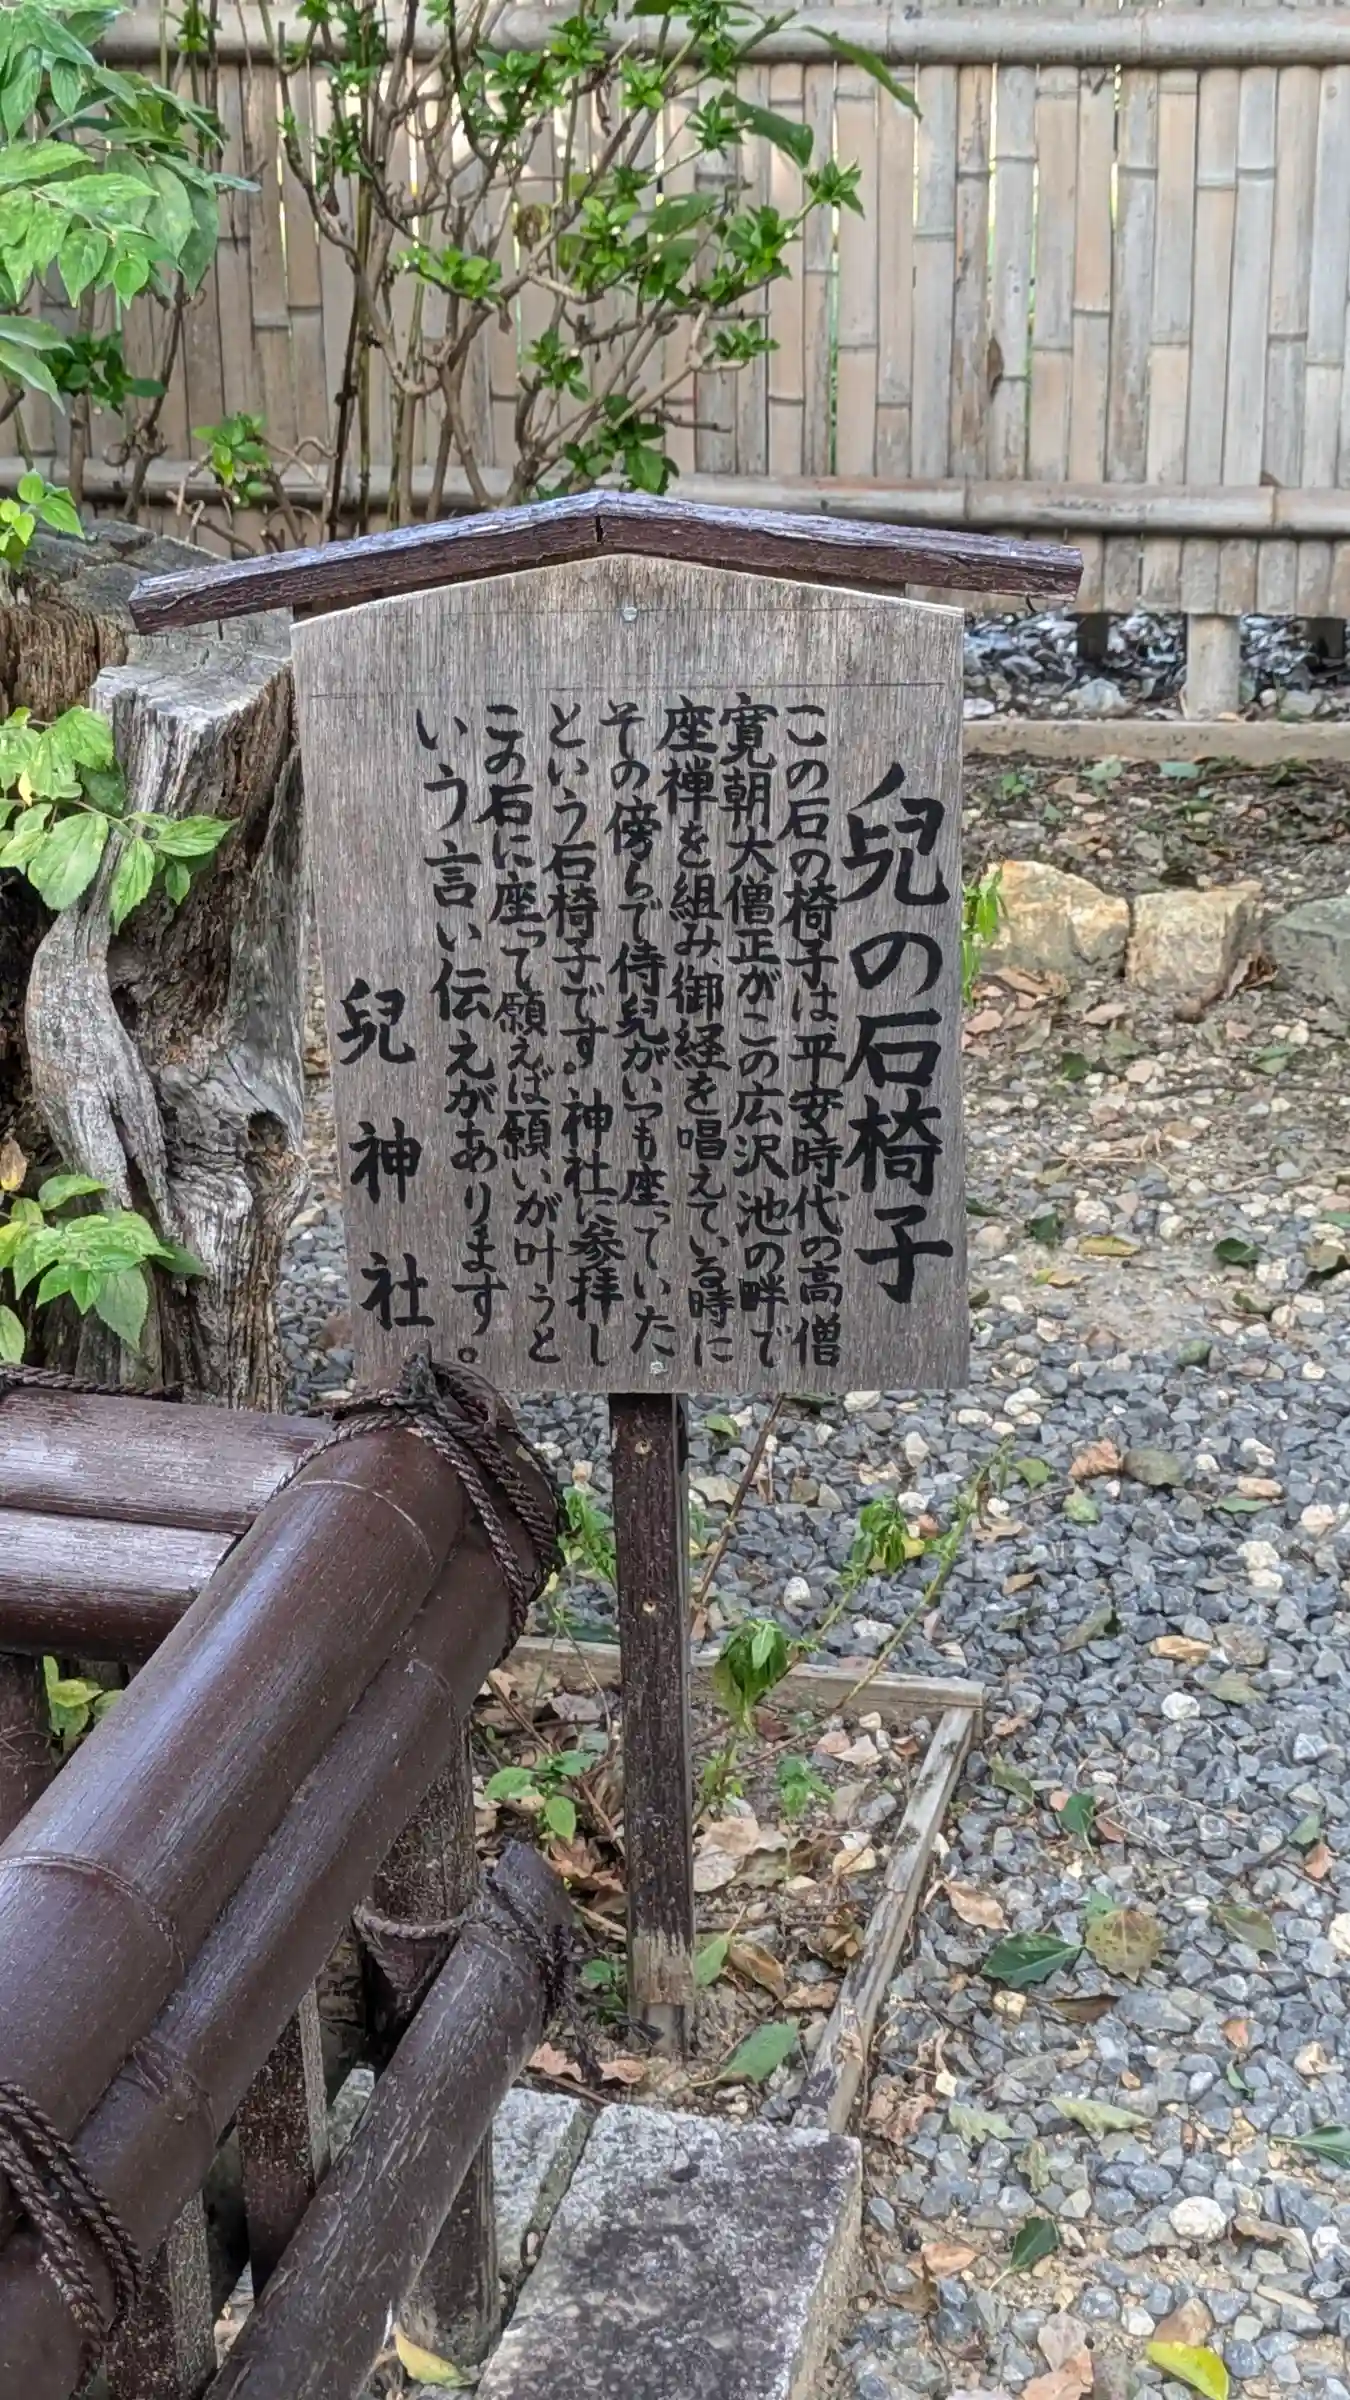 兒の石椅子
この石の椅子は、平安時代の高僧
寛朝大僧正がこの広沢池の畔で
座禅を組み、御経を唱えている時に
その傍らで侍兒がいつも座っていた
という石椅子です。神社に参拝し
この石に座って願えば願いが叶うと
いう言い伝えがあります。
兒神社